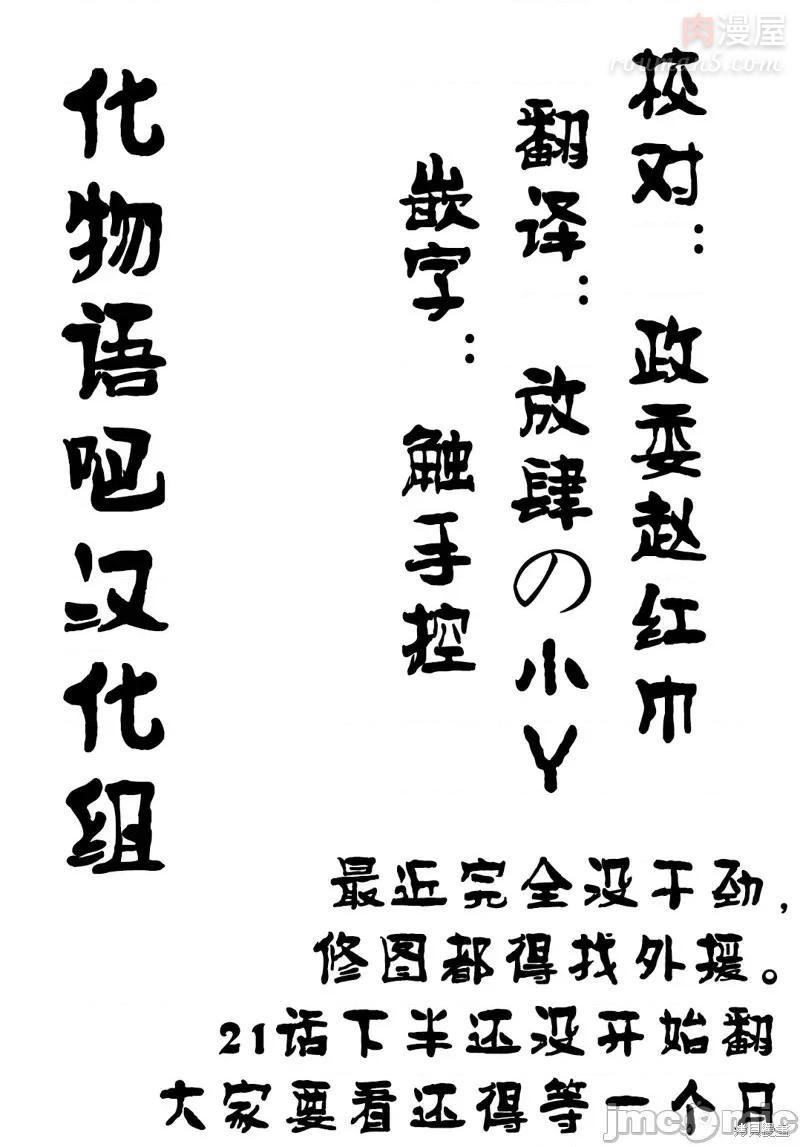 肉漫屋
rouman5.com
校对：政委赵红巾
翻译：放肆の小Y
嵌字：触手控
化物语吧汉化组
最近完全没干劲，
修图都得找外援。
21话下半还没开始翻
大家要看还得等一个月
jmcomic
拷貝漫畫